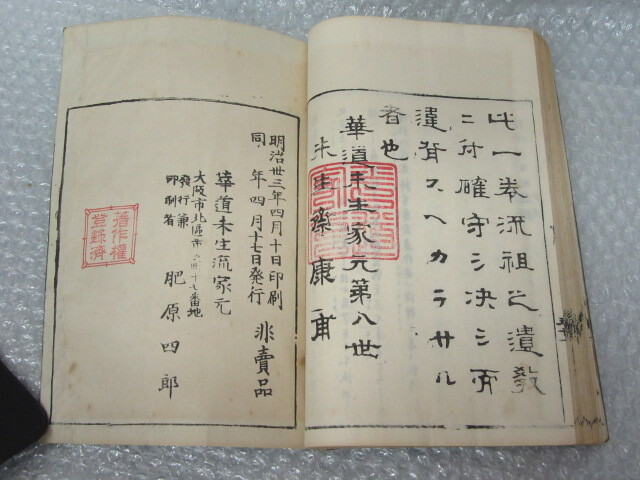 此一巻流祖之遺教
ニ付確守シ決シ而
違背スヘカラサル
者也
華道未生家元第八世
未生斎康甫
明治廿三年四月十日印刷
同 年四月十七日発行
非賣品
華道未生流家元
大阪市北區
番地
発行兼
印刷者
肥原四郎
著作權
登録済